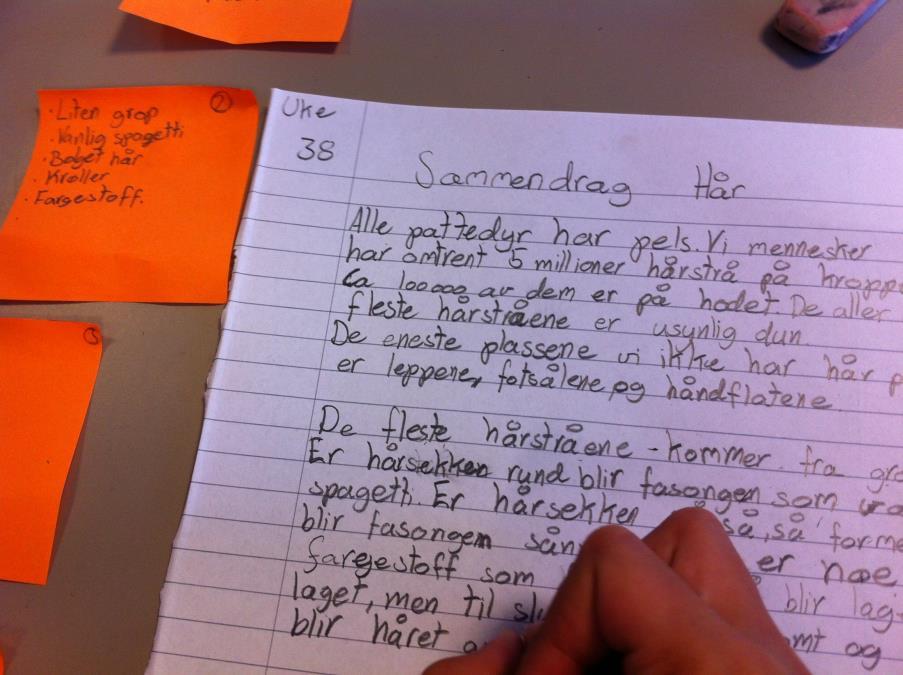 ②
· Liten grop
· Vanlig spagetti
· Bøyet hår
· Krøller
· Fargestoff.
③
Uke
38
Sammendrag Hår
Alle pattedyr har pels. Vi mennesker
har omtrent 5 millioner hårstrå på
Ca 100000 av dem er på hodet. De aller
fleste hårstråene er usynlig dun.
De eneste plassene vi ikke har hår
er leppene, fotsålene og håndflatene.
De fleste hårstråene - kommer fra
Er hårsekken rund blir fasongen som
spagetti. Er hårsekken så, så
blir fasongen
fargestoff som er noe
laget, men til blir
blir håret og